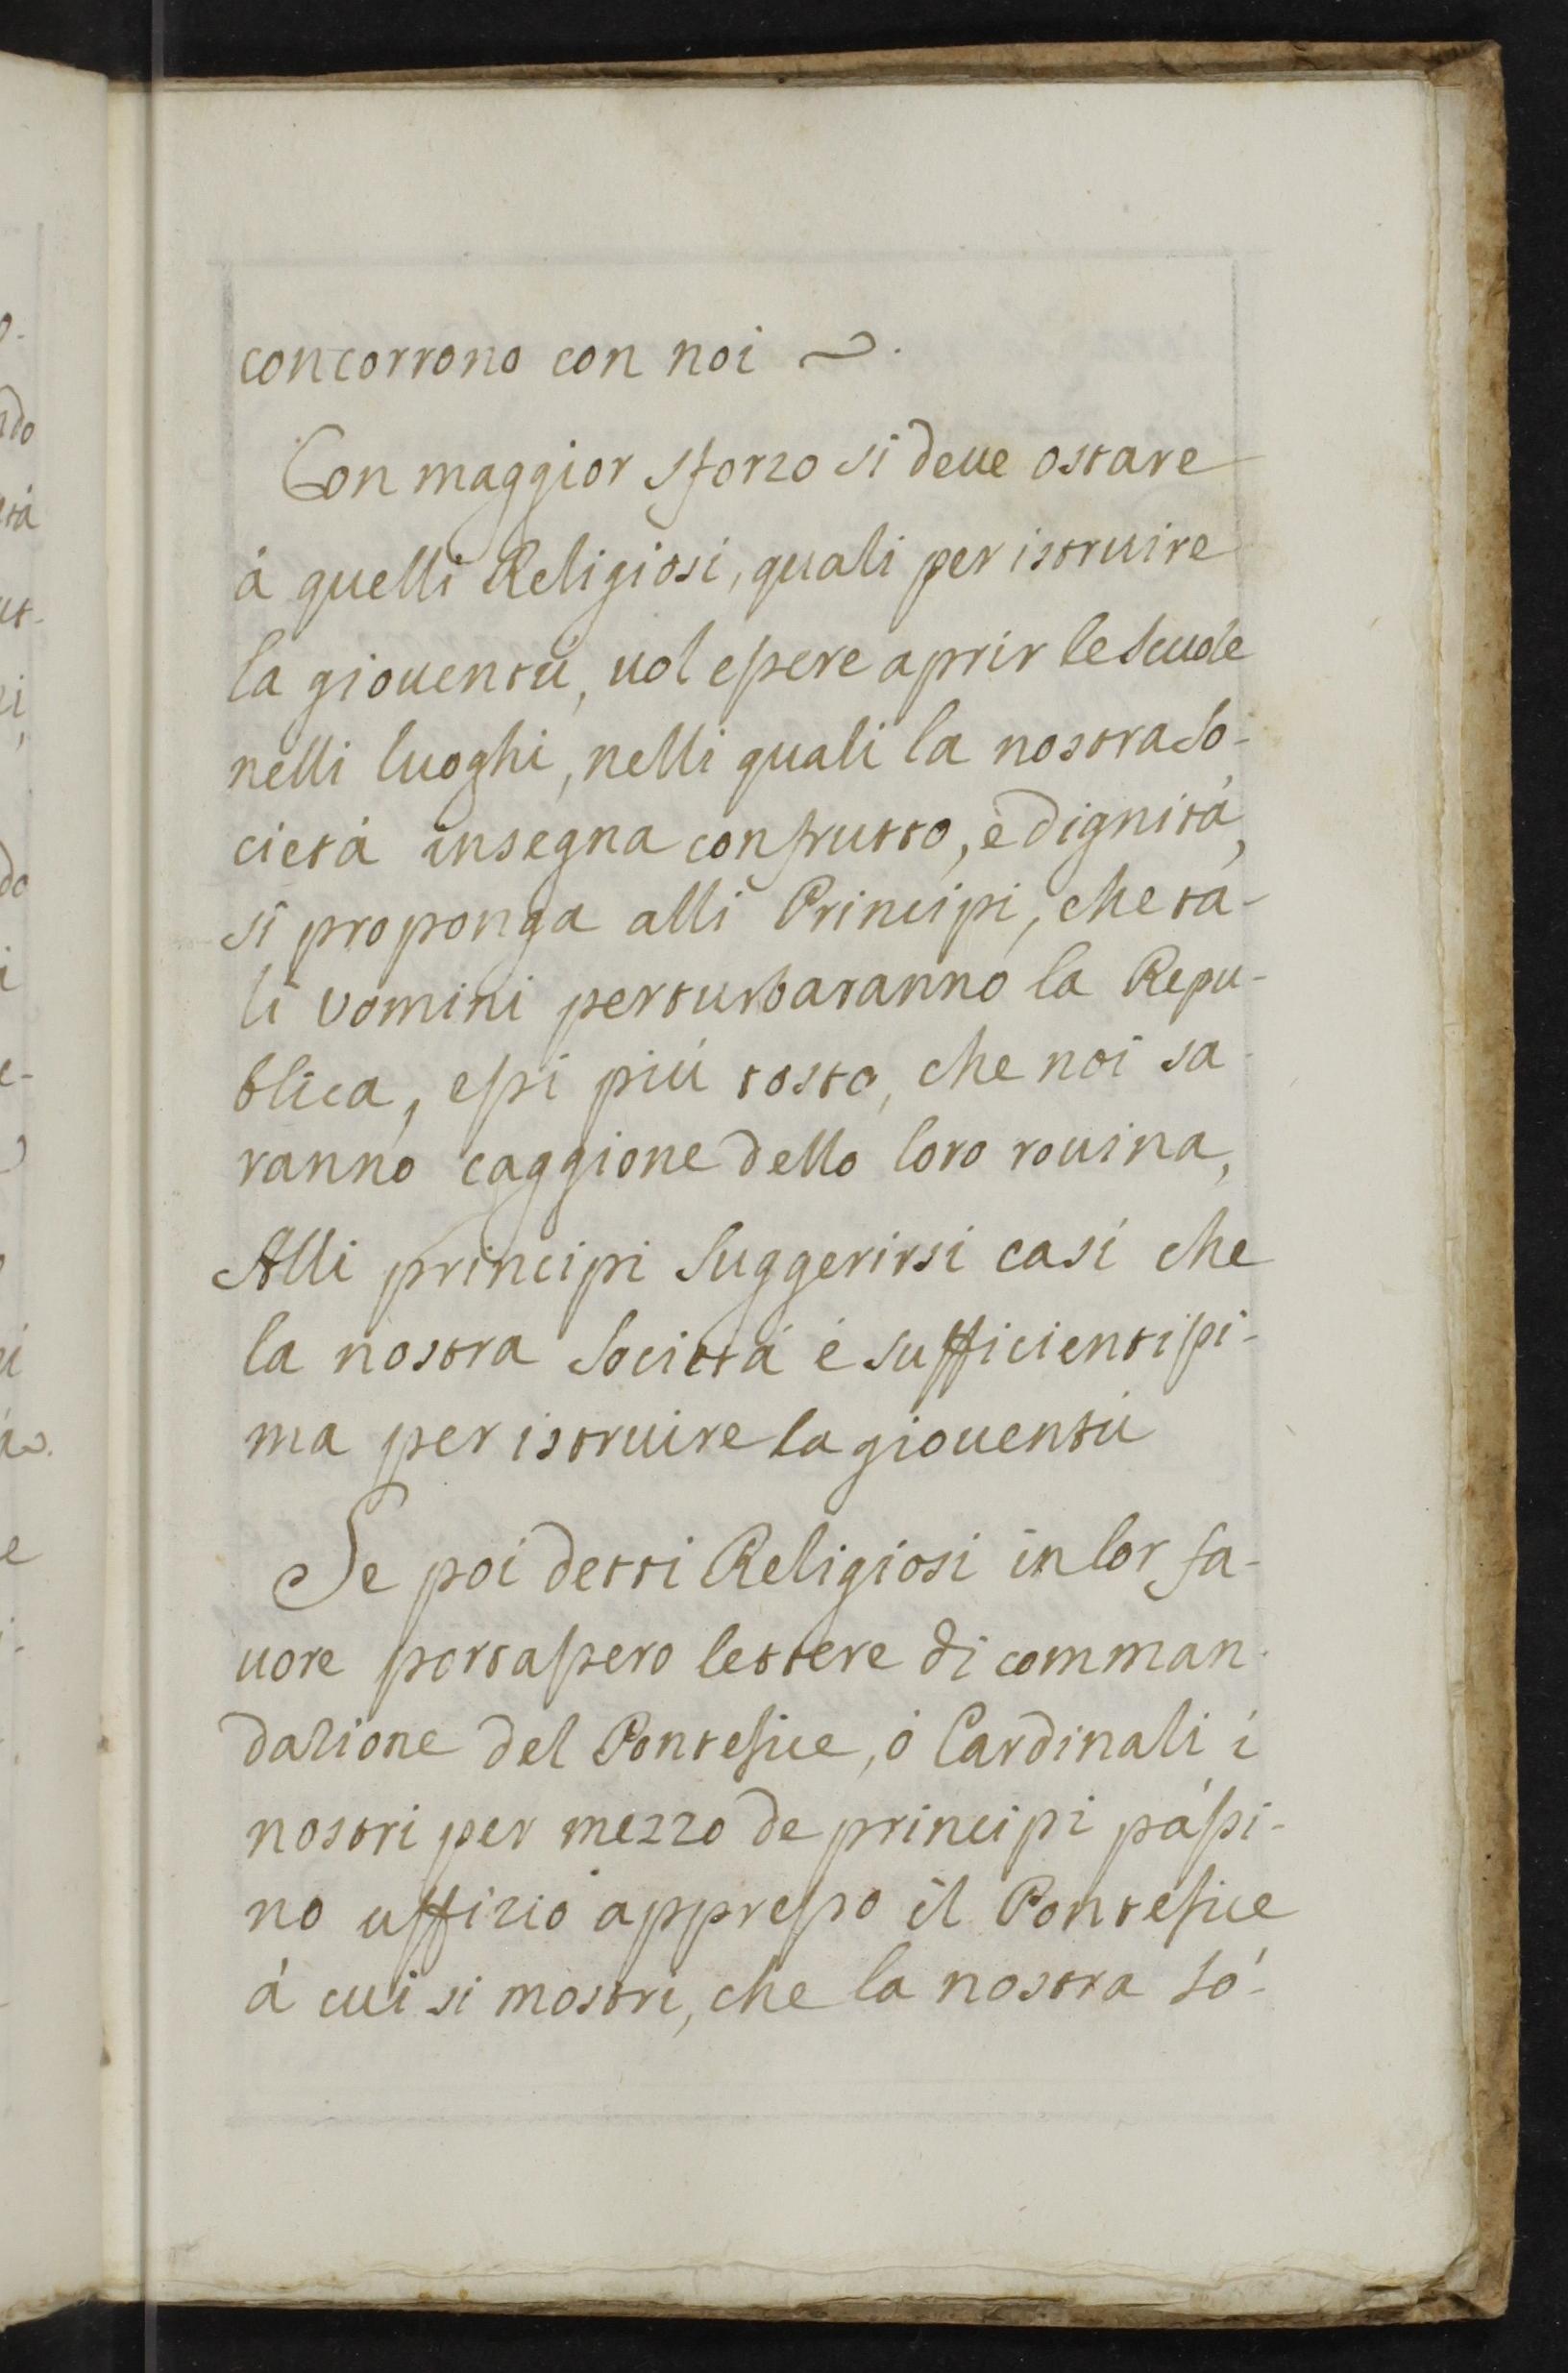 concorrono con noi ~.
Con maggior sforzo si deue ostare
á quelli Religiosi, quali per istruire
la giouentú, uol essere aprir le Scuole
nelli luoghi, nelli quali la nostra So-
cietá insegna con frutto, è dignitá,
si proponga alli Principi, che ta-
li vomini perturbaranno la Repu-
blica, essi piú tosto, che noi sa-
ranno caggione dello loro rouina,
Alli principi Suggerirsi casí che
la nostra Societá é sufficientissi-
ma per istruire la giouentú
Se poi detti Religiosi in lor fa-
uore portassero lettere di comman-
dazione del Pontefice, ó Cardinali i
nostri per mezzo de principi passi-
no uffizio appresso il Pontefice
á cui si mostri, che la nostra So-